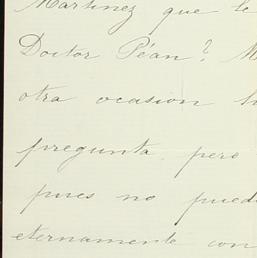 Martinez que le
Doctor Péan? M
otra ocasion h
pregunta, pero
pues no pued
eternamente con